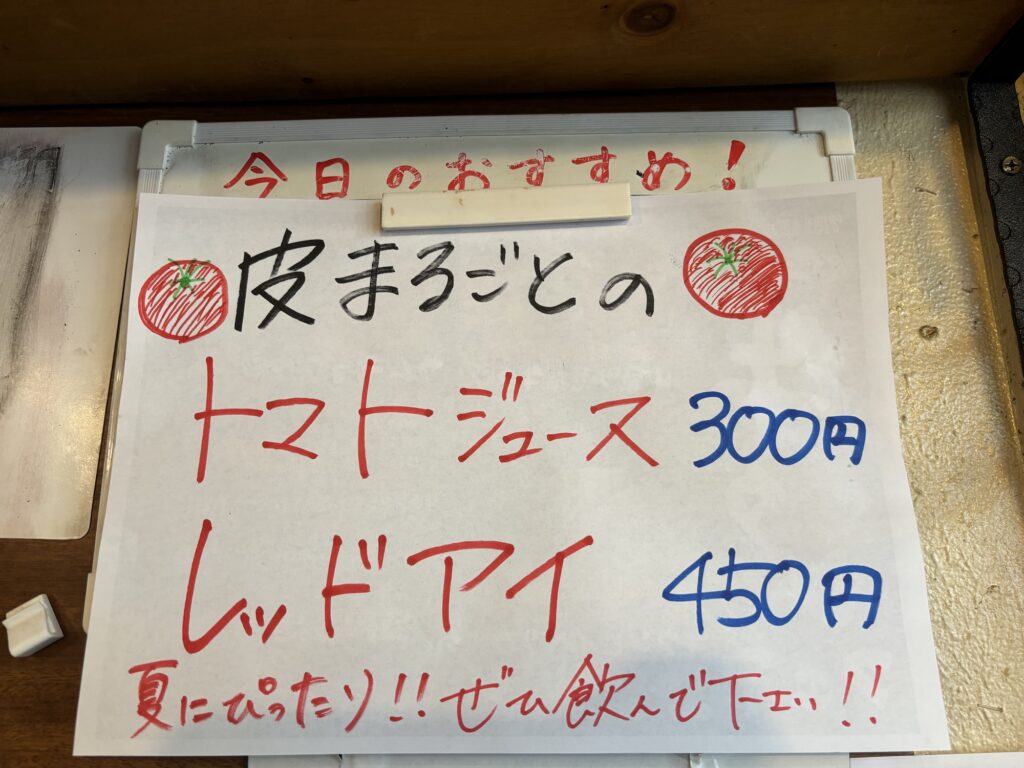 今日のおすすめ!
皮まるごとの
トマトジュース 300円
レッドアイ 450円
夏にぴったり!!ぜひ飲んで下さい!!